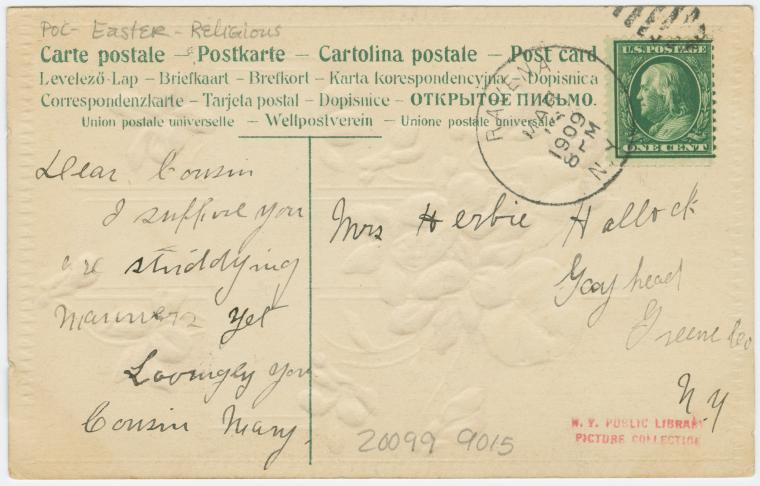 POC - Easter - Religious
Carte postale – Postkarte – Cartolina postale – Post card
Levelező-Lap – Briefkaart – Brefkort – Karta korespondencyjna – Dopisnica
Correspondenzkarte – Tarjeta postal – Dopisnice – ОТКРЫТОЕ ПИСЬМО.
Union postale universelle – Weltpostverein – Unione postale universale
U.S. POSTAGE
ONE CENT
RAVENA
MAR
1909
8 PM
N.Y.
Dear Cousin
I suppose you
are studdying
Manners yet
Lovingly you
Cousin Mary.
Mrs Herbie Hallock
Gayhead
Greene Co
N.Y
20099 9015
N. Y. PUBLIC LIBRARY
PICTURE COLLECTION